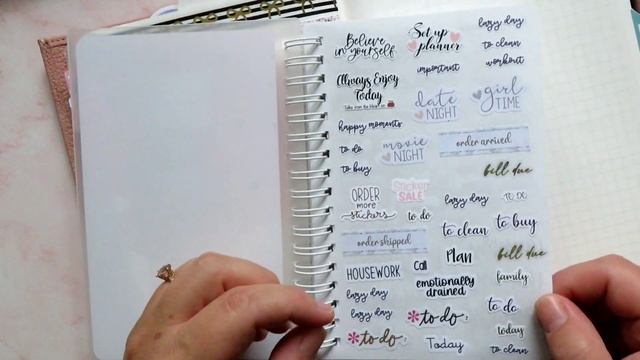 Believe
in yourself
Set up
planner
lazy day
to clean
important
workout
Always Enjoy
Today
date
NIGHT
girl
TIME
happy moments
to do
movie
NIGHT
order arrived
to buy
bill due
ORDER
more
stickers
Sticker
SALE
lazy day
TO DO
to do
to clean
to buy
order shipped
Plan
bill due
HOUSEWORK
Call
emotionally
drained
family
lazy day
to do
lazy day
*to do
today
*to do
Today
to clean